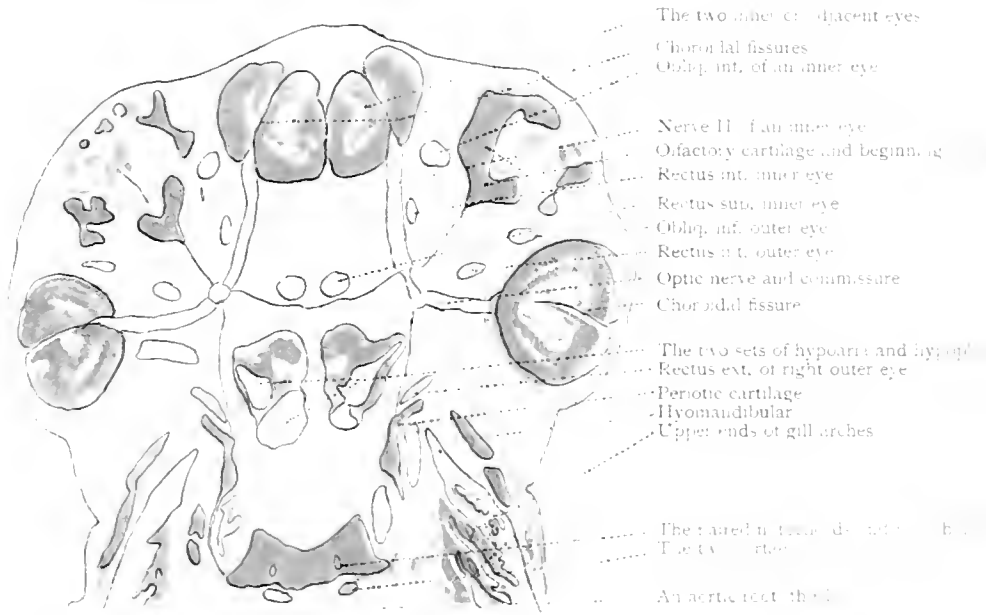 The two inner or adjacent eyes
Choroidal fissures
Obliq. int. of an inner eye
Nerve II of an inner eye
Olfactory cartilage and beginning
Rectus int. inner eye
Rectus sup. inner eye
Obliq. inf. outer eye
Rectus int. outer eye
Optic nerve and commissure
Choroidal fissure
The two sets of hypoaria and
Rectus ext. of right outer eye
Periotic cartilage
Hyomandibular
Upper ends of gill arches
The paired
The two
An aortic root